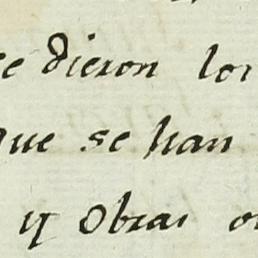 se dieron los
que se han
y Obras